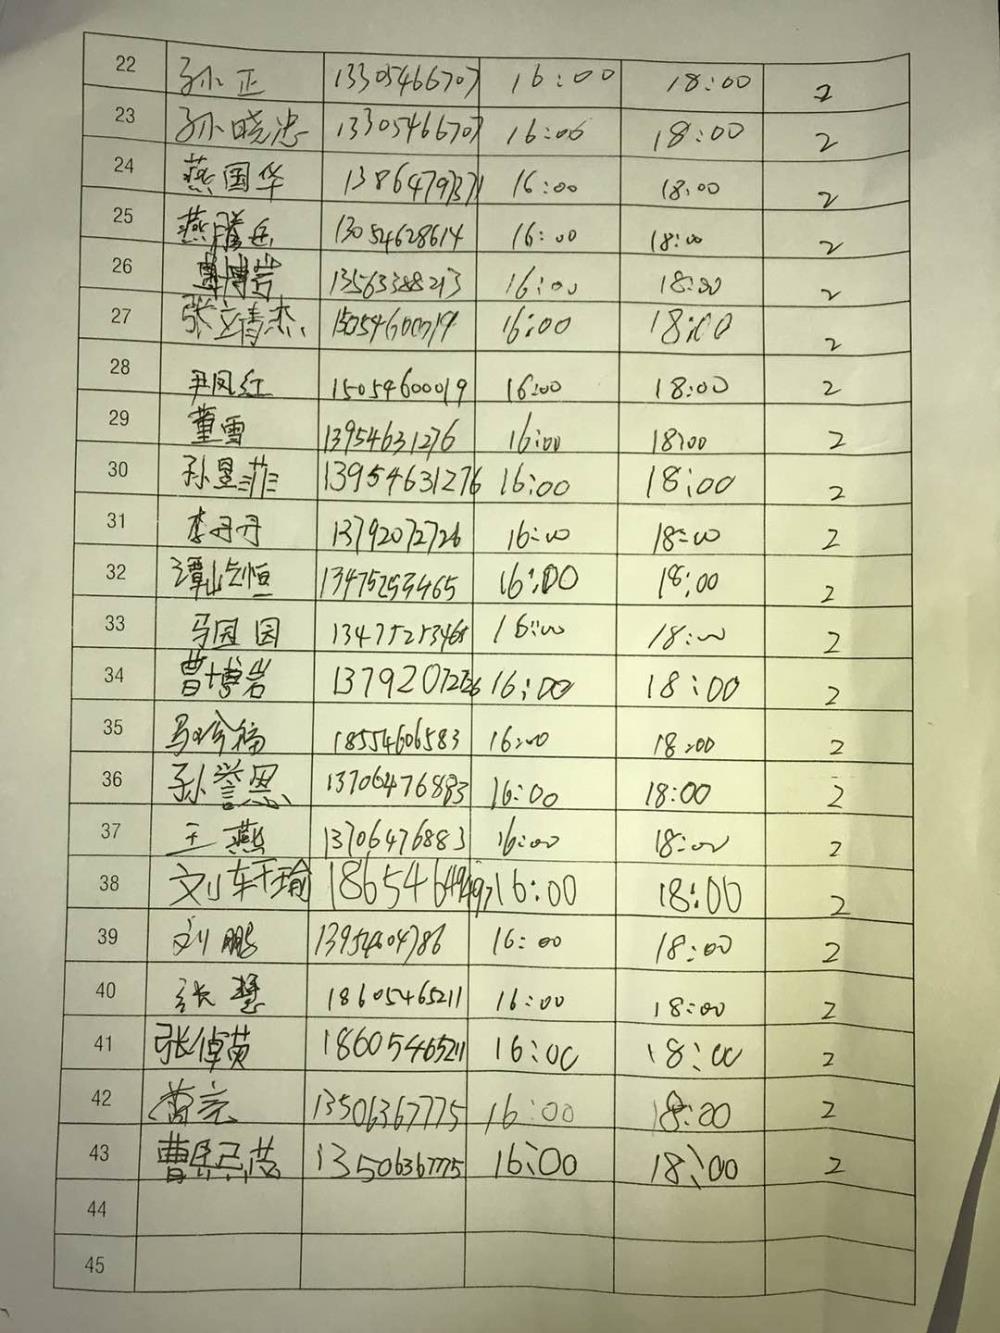 22 孙正 13305466707 16:00 18:00 2
23 孙晓忠 13305466707 16:00 18:00 2
24 燕国华 1386479371 16:00 18:00 2
25 燕腾岳 13054628614 16:00 18:00 2
26 岩 13563388213 16:00 18:00 2
27 张立青杰 15054600019 16:00 18:00 2
28 尹凤红 15054600019 16:00 18:00 2
29 董雪 13954631276 16:00 18:00 2
30 孙昱菲 13954631276 16:00 18:00 2
31 李丹丹 13792072726 16:00 18:00 2
32 谭屹恒 13475253465 16:00 18:00 2
33 马园园 13475253465 16:00 18:00 2
34 曹博岩 13792072726 16:00 18:00 2
35 马珍福 18554606583 16:00 18:00 2
36 孙誉恩 13706476883 16:00 18:00 2
37 王燕 13706476883 16:00 18:00 2
38 刘轩瑜 16:00 18:00 2
39 刘鹏 13954604786 16:00 18:00 2
40 张慧 18605465211 16:00 18:00 2
41 张倬菡 18605465211 16:00 18:00 2
42 13506367775 16:00 18:00 2
43 曹 13506367775 16:00 18:00 2
44
45